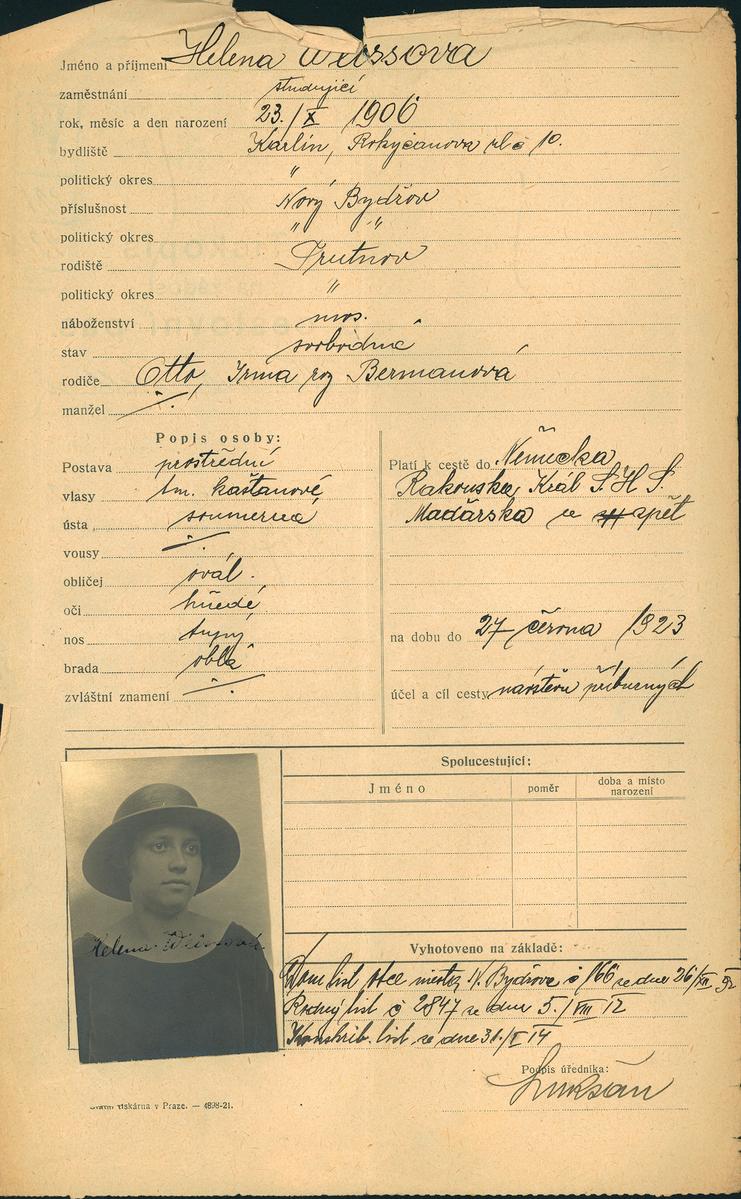 Jméno a příjmení Helena Weissova
zaměstnání studující
rok, měsíc a den narození 23./X 1906
bydliště Karlín, Rokycanova ul č 10.
politický okres "
příslušnost Nový Bydžov
politický okres " "
rodiště Trutnov
politický okres "
náboženství mos.
stav svobodná
rodiče Otto, Irma roz Bermanová
manžel ./.
Popis osoby:
Postava prostřední
vlasy tm. kaštanové
ústa souměrná
vousy ./.
obličej ovál.
oči hnědé
nos tupý
brada oblá
zvláštní znamení ./.
Platí k cestě do Německa
Rakouska, Král S.H.S.
Maďarska a zpět
na dobu do 27 června 1923
účel a cíl cesty návštěva příbuzných
Spolucestující:
Jméno poměr doba a místo narození
Helena Weissová
Vyhotoveno na základě:
Dom list obce města N. Bydžova č 166 ze dne 26/XII
Rodný list č 2847 ze dne 5./VIII 12
Konskrib. list ze dne 31./I 14
Podpis úředníka:
tiskárna v Praze. — 4898-21.